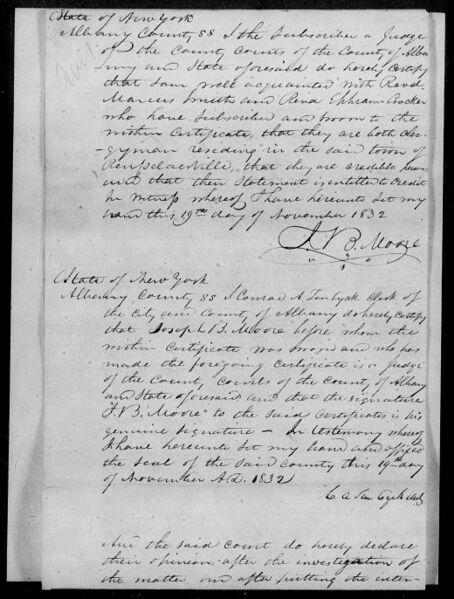 State of New York
Albany County ss I the Subscriber a Judge
of the County Courts of the County of Alba
ny and State aforesaid do hereby Certify
that I am well acquainted with Revd
Marcus Smith and Revd Ephraim Crocker
who have Subscribed and sworn to the
within Certificate, that they are both cler-
gyman residing in the said town of
Rensselaerville, that they are credible persons
and that their Statement is entitled to Credit
In witness whereof I have hereunto set my
hand this 19th day of November 1832
J. B. Moore
State of New York
Albany County ss I Conrad A. Ten Eyck Clerk of
the City and County of Albany do hereby Certify
that Joseph B. Moore before whom the
within Certificate was sworn and who has
made the foregoing Certificate is a Judge
of the County Courts of the County of Albany
and State aforesaid and that the signature
"J. B. Moore" to the said Certificates is his
genuine Signature - In testimony whereof
I have hereunto set my hand and affixed
the Seal of the said County this 19th day
of November A.D. 1832
C A Ten Eyck clerk
And the said Court do hereby declare
their opinion, after the investigation of
the matter, and after putting the inter-